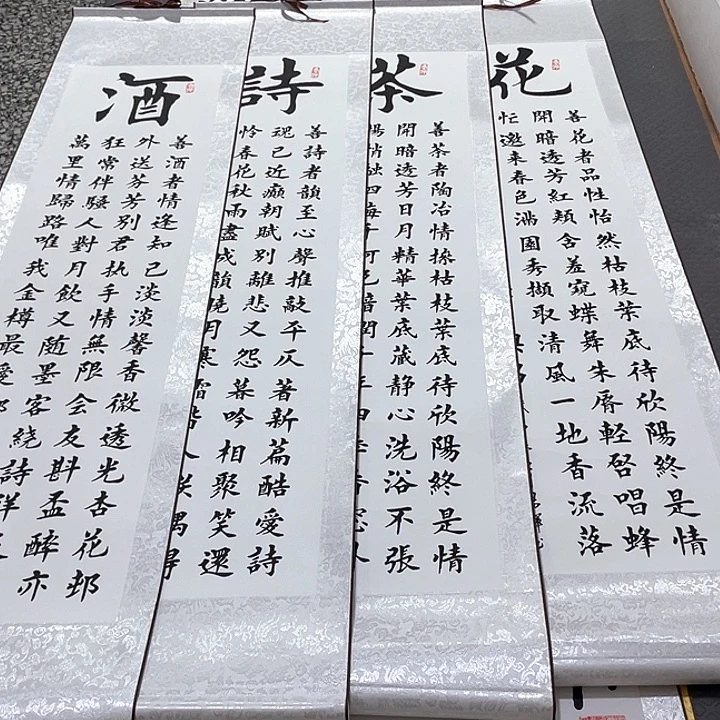 花
善花者品性怡然枯枝葉底待欣陽終是情
開暗透芳紅頰含羞窺蝶舞朱唇輕啓唱蜂
忙邀來春色滿園秀擷取清風一地香流落
茶
善茶者陶冶情操枯枝葉底待欣陽終是情
開暗透芳日月精華葉底蔵静心洗浴不張
四海
詩
善詩者韻至心聲推敲平仄著新篇酷愛詩
現己近癲朝賦別離悲又怨暮吟相聚笑還
怜春花秋雨盡成韻曉月寒
酒
善酒者情逢知己淡淡馨香微透光杏花邨
外送芬芳別君执手情無限会友斟盃醉亦
狂常伴騷人對月飲又随墨客绕詩洋
萬里情歸路唯我金樽最愛